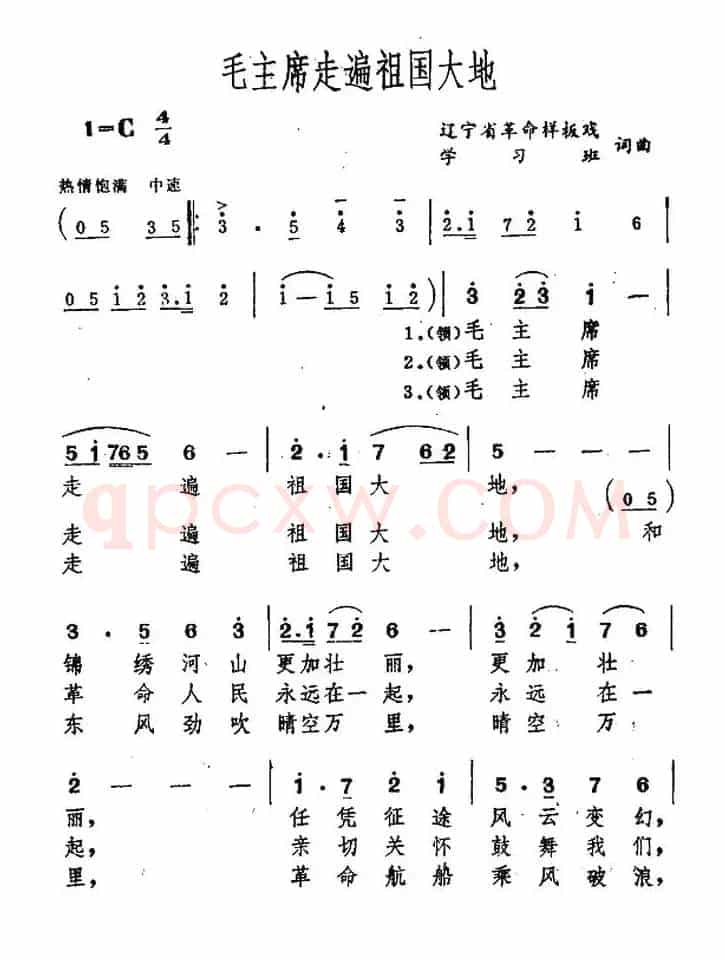 毛主席走遍祖国大地
1=C 4/4
辽宁省革命样板戏
学习班 词曲
热情饱满 中速
(0 5 3 5 ‖: 3 . 5 4 3 | 2.1 7 2 1 6 |
0 5 1 2 3.1 2 | 1 — 1 5 1 2) | 3 2 3 1 — |
1.(领)毛 主 席
2.(领)毛 主 席
3.(领)毛 主 席
5 1 7 6 5 6 — | 2 . 1 7 6 2 | 5 — — (0 5) |
走 遍 祖 国 大 地,
走 遍 祖 国 大 地, 和
走 遍 祖 国 大 地,
qpcxw.COM
3 . 5 6 3 | 2.1 7 2 6 — | 3 2 1 7 6 |
锦 绣 河 山 更 加 壮 丽, 更 加 壮
革 命 人 民 永 远 在 一 起, 永 远 在 一
东 风 劲 吹 晴 空 万 里, 晴 空 万
2 — — — | 1 . 7 2 1 | 5 . 3 7 6 |
丽, 任 凭 征 途 风 云 变 幻,
起, 亲 切 关 怀 鼓 舞 我 们,
里, 革 命 航 船 乘 风 破 浪,